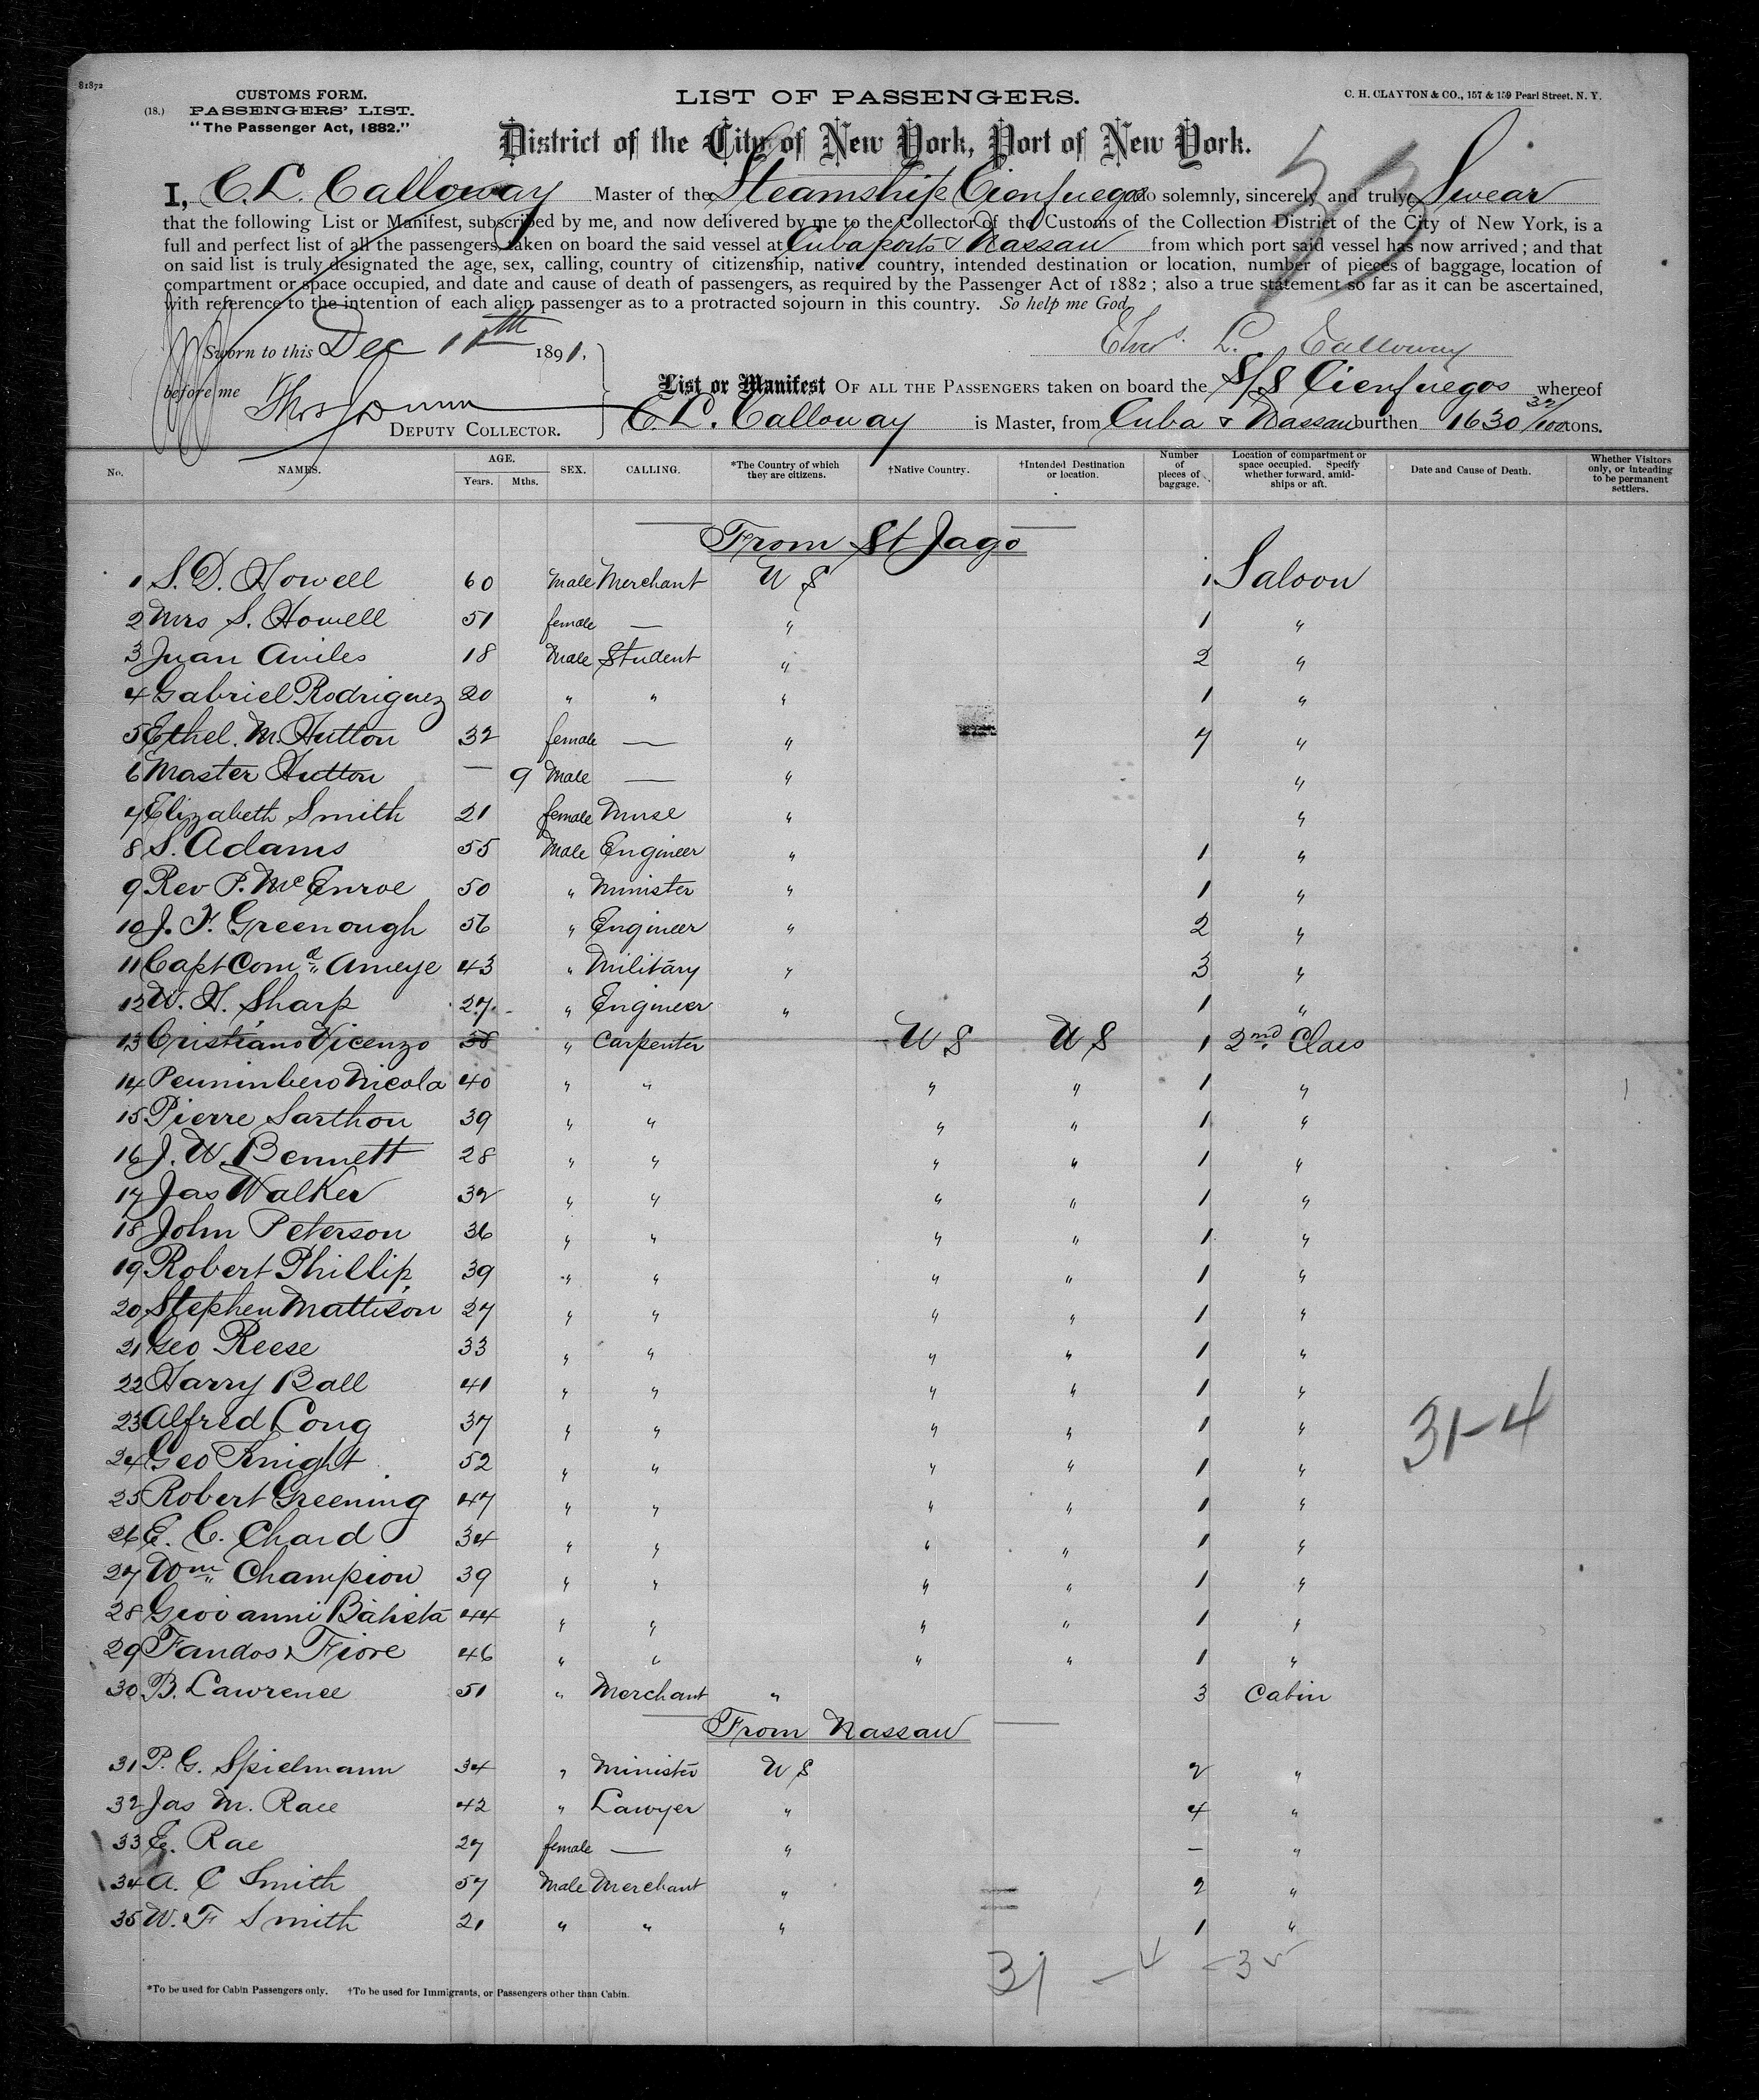 81872
CUSTOMS FORM.
(18.) PASSENGERS' LIST.
"The Passenger Act, 1882."
LIST OF PASSENGERS.
C. H. CLAYTON & CO., 157 & 159 Pearl Street. N. Y.
District of the City of New York, Port of New York.
I, C. L. Calloway Master of the Steamship Cienfuegos do solemnly, sincerely and truly Swear
that the following List or Manifest, subscribed by me, and now delivered by me to the Collector of the Customs of the Collection District of the City of New York, is a
full and perfect list of all the passengers taken on board the said vessel at Cuba ports & Nassau from which port said vessel has now arrived; and that
on said list is truly designated the age, sex, calling, country of citizenship, native country, intended destination or location, number of pieces of baggage, location of
compartment or space occupied, and date and cause of death of passengers, as required by the Passenger Act of 1882; also a true statement so far as it can be ascertained,
with reference to the intention of each alien passenger as to a protracted sojourn in this country. So help me God,
L. Calloway
Sworn to this Dec 1891,
before me
DEPUTY COLLECTOR.
List or Manifest OF ALL THE PASSENGERS taken on board the S/S Cienfuegos whereof
C. L. Calloway is Master, from Cuba & Nassau burthen 1630 32/100 tons.
No. NAMES. AGE. Years. Mths. SEX. CALLING. *The Country of which they are citizens. †Native Country. †Intended Destination or location. Number of pieces of baggage. Location of compartment or space occupied. Specify whether forward, amid-ships or aft. Date and Cause of Death. Whether Visitors only, or intending to be permanent settlers.
From St Jago
1 S. D. Howell 60 Male Merchant U S 1 Saloon
2 Mrs S. Howell 51 female — " 1 "
3 Juan Aviles 18 Male Student " 2 "
4 Gabriel Rodriguez 20 " " " 1 "
5 Ethel. M. Hutton 32 female — " 7 "
6 Master Hutton — 9 Male — " "
7 Elizabeth Smith 21 female Nurse " "
8 S. Adams 55 Male Engineer " 1 "
9 Rev P. McEnroe 50 " Minister " 1 "
10 J. F. Greenough 56 " Engineer " 2 "
11 Capt Comd Ameye 43 " Military " 3 "
12 W. H. Sharp 27 " Engineer " 1 "
13 Cristiano Vicenzo 38 " Carpenter U S U S 1 2nd Class
14 Nicola 40 " " " " 1 "
15 Pierre Sarthou 39 " " " " 1 "
16 J. W. Bennett 28 " " " " 1 "
17 Jas Walker 32 " " " " 1 "
18 John Peterson 36 " " " " 1 "
19 Robert Phillip 39 " " " " 1 "
20 Stephen Mattison 27 " " " " 1 "
21 Geo Reese 33 " " " " 1 "
22 Harry Ball 41 " " " " 1 "
23 Alfred Cong 37 " " " " 1 "
31-4
24 Geo Knight 52 " " " " 1 "
25 Robert Greening 47 " " " " 1 "
26 E. C. Chard 34 " " " " 1 "
27 Wm Champion 39 " " " " 1 "
28 Giovanni Batista 44 " " " " 1 "
29 Fandos Fiore 46 " " " " 1 "
30 B. Lawrence 51 " Merchant " 3 Cabin
From Nassau
31 P. G. Spielmann 34 " Minister U S 2 "
32 Jas M. Race 42 " Lawyer " 4 "
33 E. Rae 27 female — " — "
34 A. C Smith 57 Male Merchant " 2 "
35 W. F Smith 21 " " " 1 "
31 - 4 - 35
*To be used for Cabin Passengers only. †To be used for Immigrants, or Passengers other than Cabin.